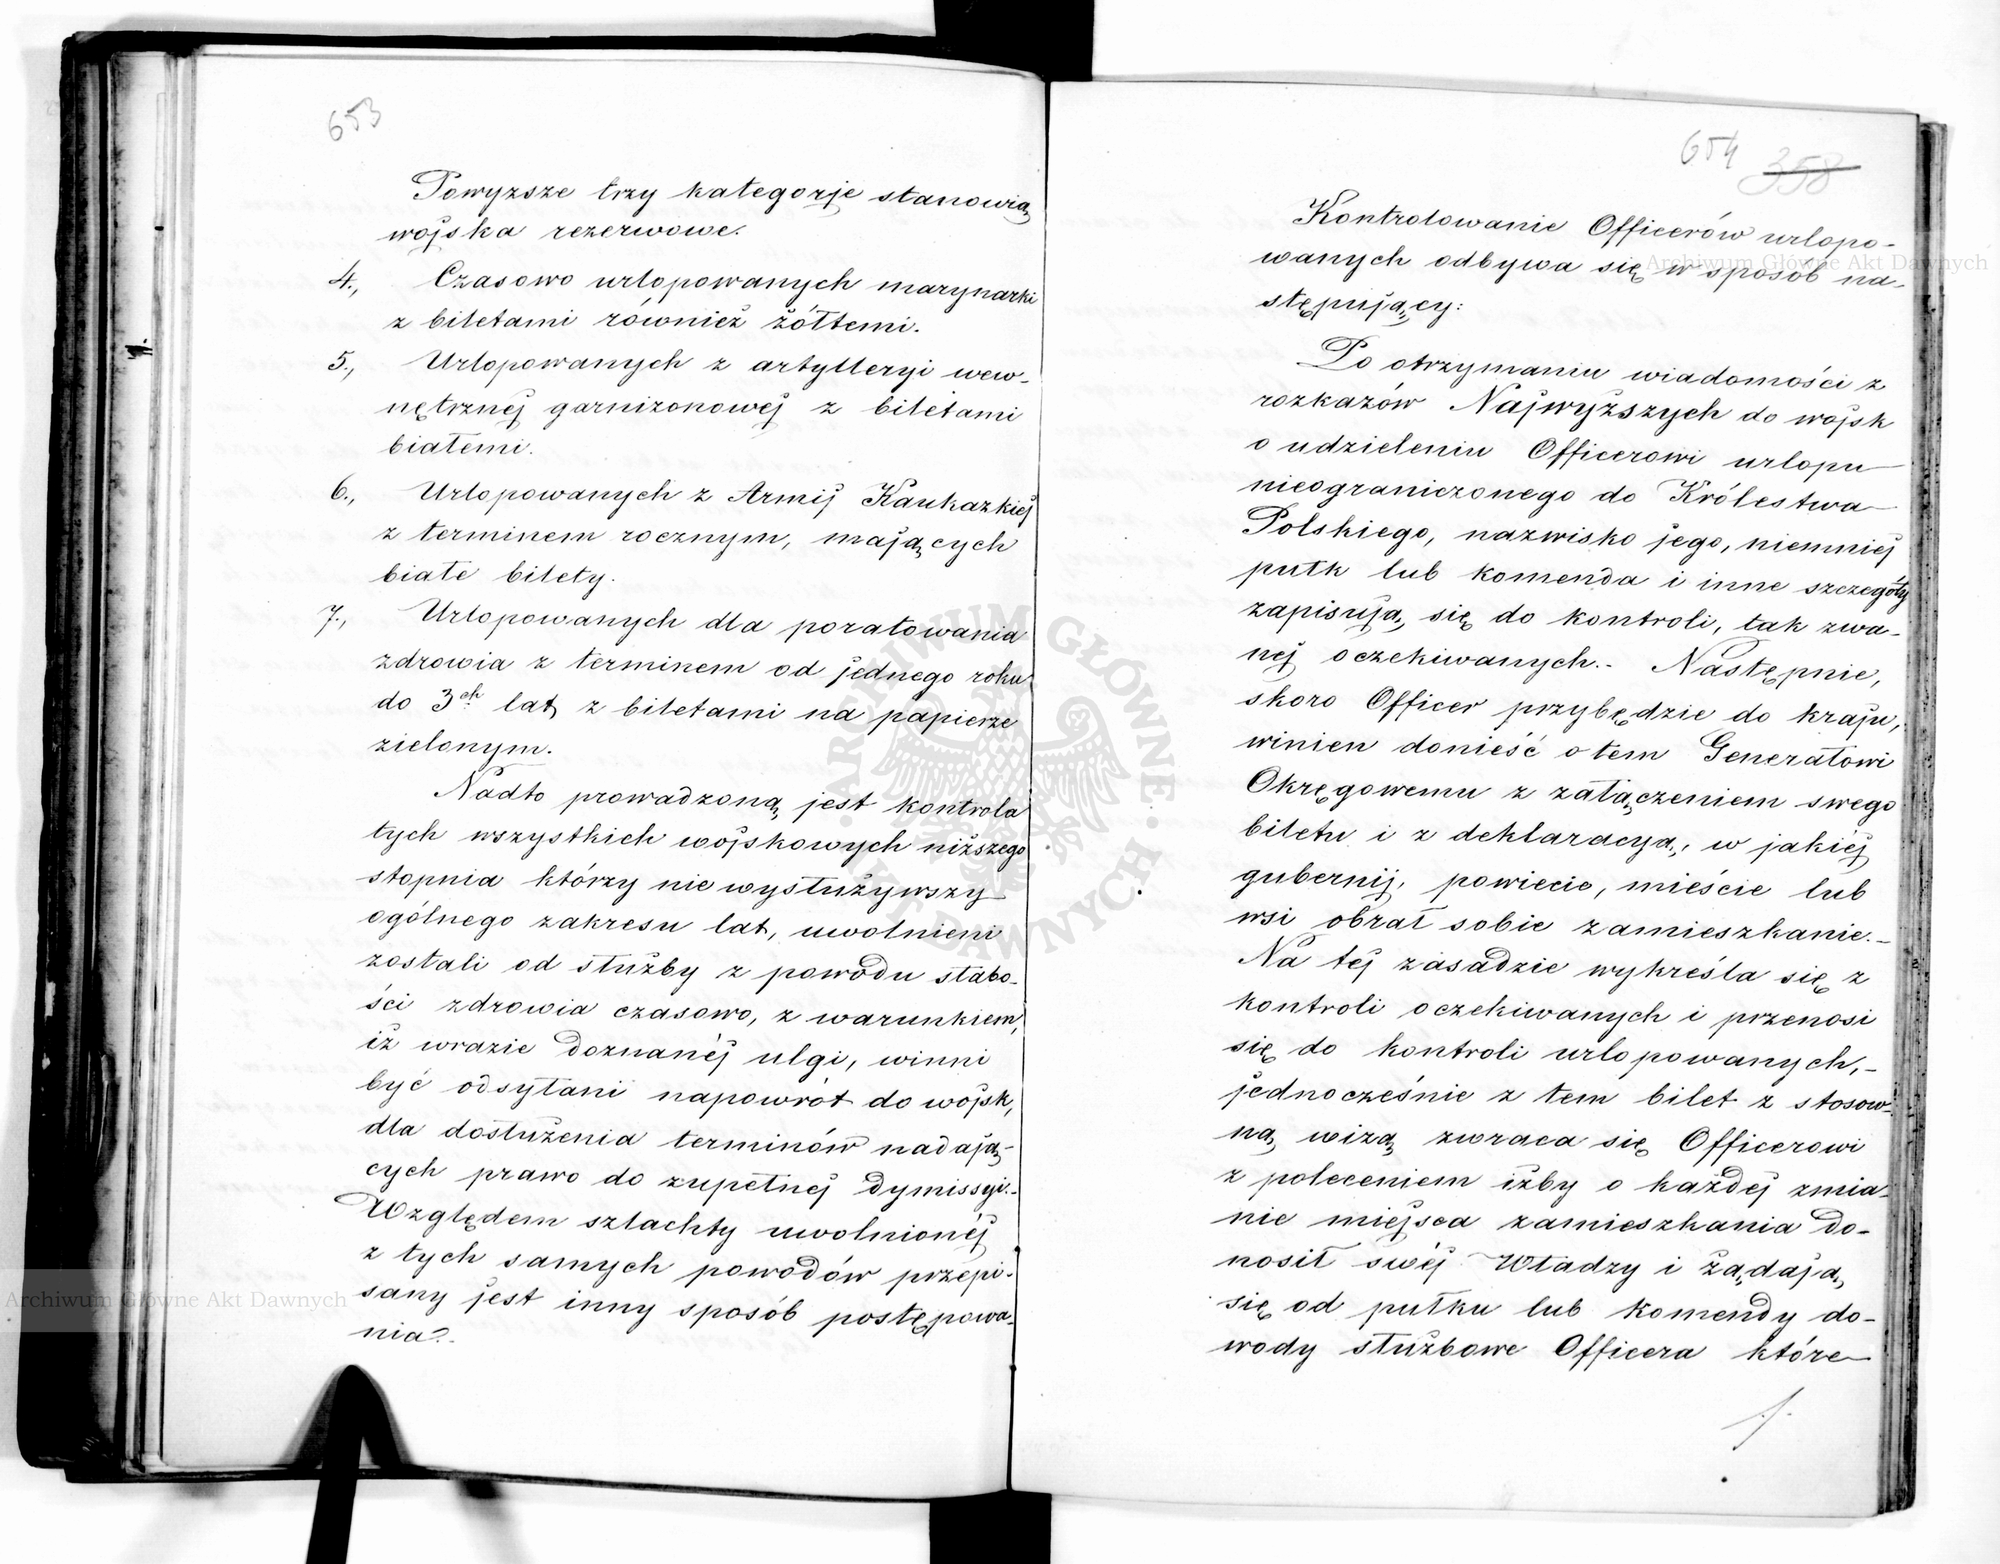 653
Powyzsze trzy kategorje stanowią
wojska rezerwowe.
4., Czasowo urlopowanych marynarki
z biletami również żółtemi.
5., Urlopowanych z artylleryi wew-
nętrznéj garnizonowéj z biletami
białemi.
6., Urlopowanych z Armij Kaukazkiéj
z terminem rocznym, mających
białe bilety.
7., Urlopowanych dla poratowania
zdrowia z terminem od jednego roku
do 3ch lat, z biletami na papierze
zielonym.
Nadto prowadzoną jest kontrola
tych wszystkich wojskowych niższego
stopnia którzy nie wysłużywszy
ogólnego zakresu lat, uwolnieni
zostali od służby z powodu słabo-
ści zdrowia czasowo, z warunkiem,
iż wrazie doznanéj ulgi, winni
być odsyłani napowrót do wojsk,
dla dosłużenia terminów nadają-
cych prawo do zupełnéj dymissyi.-
Względem szlachty uwolnionéj
z tych samych powodów przepi-
sany jest inny sposób postępowa-
nia.-
654 358
Kontrolowanie Officerów urlopo-
wanych odbywa się w sposób na-
stępujący:
Po otrzymaniu wiadomości z
rozkazów Najwyższych do wojsk
o udzieleniu Officerowi urlopu
nieograniczonego do Królestwa
Polskiego, nazwisko jego, niemniéj
pułk lub komenda i inne szczegóły
zapisują się do kontroli, tak zwa-
néj oczekiwanych.- Następnie,
skoro Officer przybędzie do kraju,
winien donieść o tem Generałowi
Okręgowemu z załączeniem swego
biletu i z deklaracyą, w jakiéj
gubernij, powiecie, mieście lub
wsi obrał sobie zamieszkanie.-
Na téj zasadzie wykreśla się z
kontroli oczekiwanych i przenosi
się do kontroli urlopowanych,-
jednocześnie z tem bilet z stosow-
ną wizą zwraca się Officerowi
z poleceniem iżby o każdéj zmia-
nie miejsca zamieszkania do-
nosił swéj Władzy i żądają
się od pułku lub komendy do-
wody służbowe Officera które
./.
Archiwum Główne Akt Dawnych
Archiwum Główne Akt Dawnych
ARCHIWUM GŁÓWNE AKT DAWNYCH